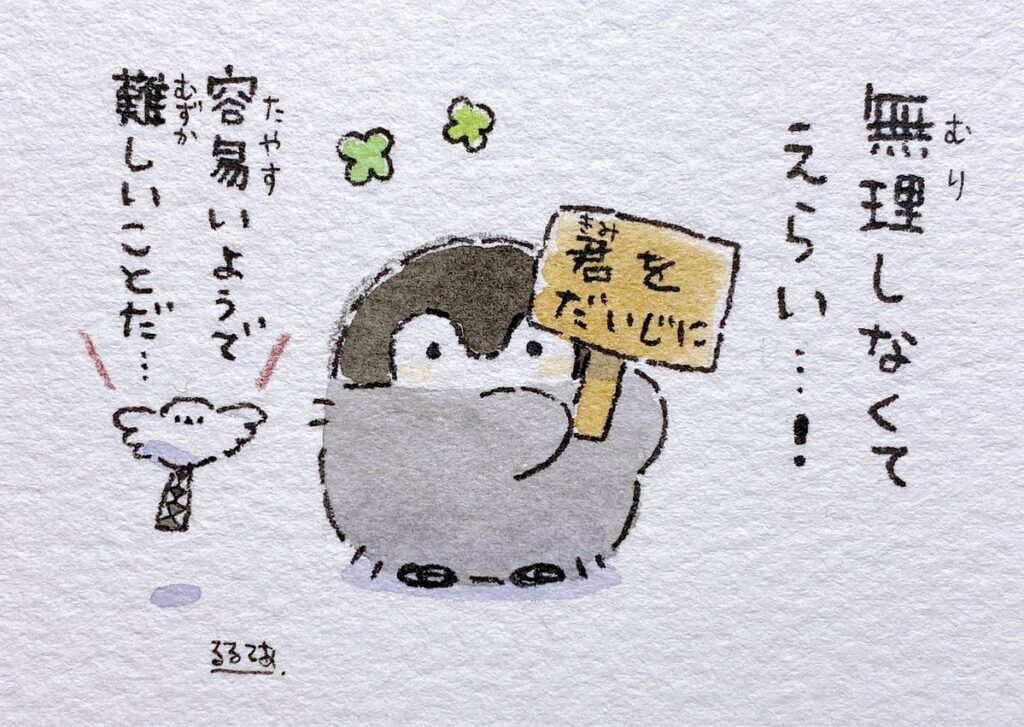 無理しなくて
むり
えらい…!
君を
きみ
だいじに
容易いようで
たやす
難しいことだ…
むずか
るるてあ.